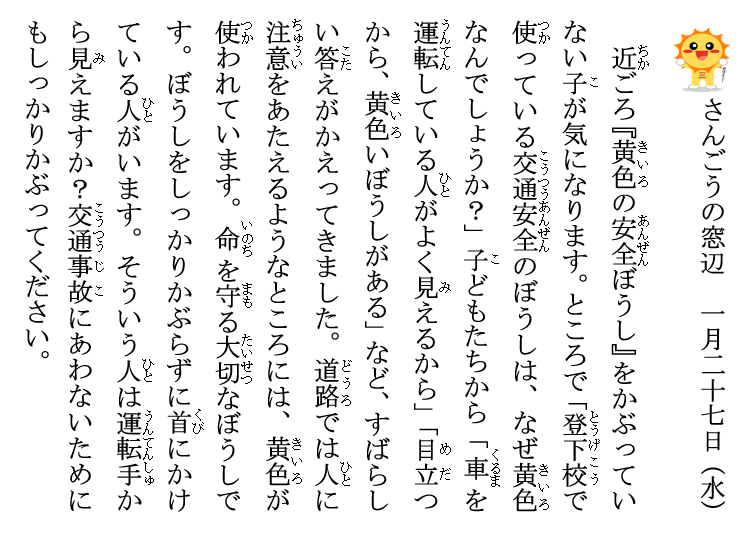 さんごうの窓辺　一月二十七日（水）
近ごろ『黄色の安全ぼうし』をかぶってい
ない子が気になります。ところで「登下校で
使っている交通安全のぼうしは、なぜ黄色
なんでしょうか？」子どもたちから「車を
運転している人がよく見えるから」「目立つ
から、黄色いぼうしがある」など、すばらし
い答えがかえってきました。道路では人に
注意をあたえるようなところには、黄色が
使われています。命を守る大切なぼうしで
す。ぼうしをしっかりかぶらずに首にかけ
ている人がいます。そういう人は運転手か
ら見えますか？交通事故にあわないために
もしっかりかぶってください。